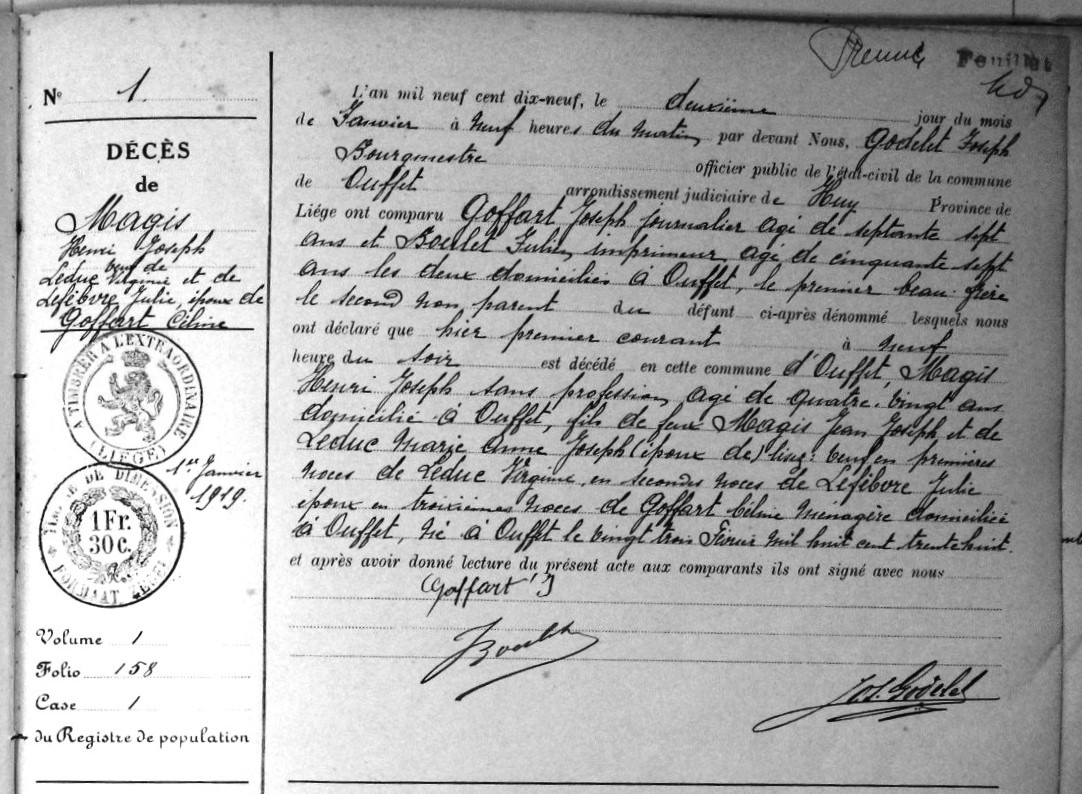 Feuillet
N° 1.
DÉCÈS
de
Magis
Henri Joseph
veuf de
Leduc Virginie et de
Lefèbvre Julie, époux de
Goffart Céline
A TIMBRER A L'EXTRAORDINAIRE
(LIÉGE)
1er Janvier
1919.
DE DIMENSION
1 Fr.
30 C.
FORMAAT ZEGEL
Volume 1
Folio 158
Case 1
du Registre de population
L'an mil neuf cent dix-neuf, le deuxième jour du mois
de Janvier à Neuf heures du matin par devant Nous, Godelet Joseph
Bourgmestre officier public de l'état-civil de la commune
de Ouffet arrondissement judiciaire de Huy Province de
Liége ont comparu Goffart Joseph journalier agé de septante sept
ans et Boulet Julien, imprimeur, agé de cinquante sept
ans les deux domiciliés à Ouffet, le premier beau-frère
le second non parent du défunt ci-après dénommé lesquels nous
ont déclaré que hier premier courant à neuf
heure du soir est décédé en cette commune d'Ouffet, Magis
Henri Joseph sans profession, agé de quatre-vingt ans
domicilié à Ouffet, fils de feux Magis Jean Joseph et de
Leduc Marie Anne Joseph (époux de) lisez: veuf en premières
noces de Leduc Virginie, en secondes noces de Lefèbvre Julie
époux en troisièmes noces de Goffart Céline Ménagère domiciliée
à Ouffet, né à Ouffet le vingt trois Février mil huit cent trente huit.
et après avoir donné lecture du présent acte aux comparants ils ont signé avec nous
Goffart J
JBoulet
Jos. Godelet